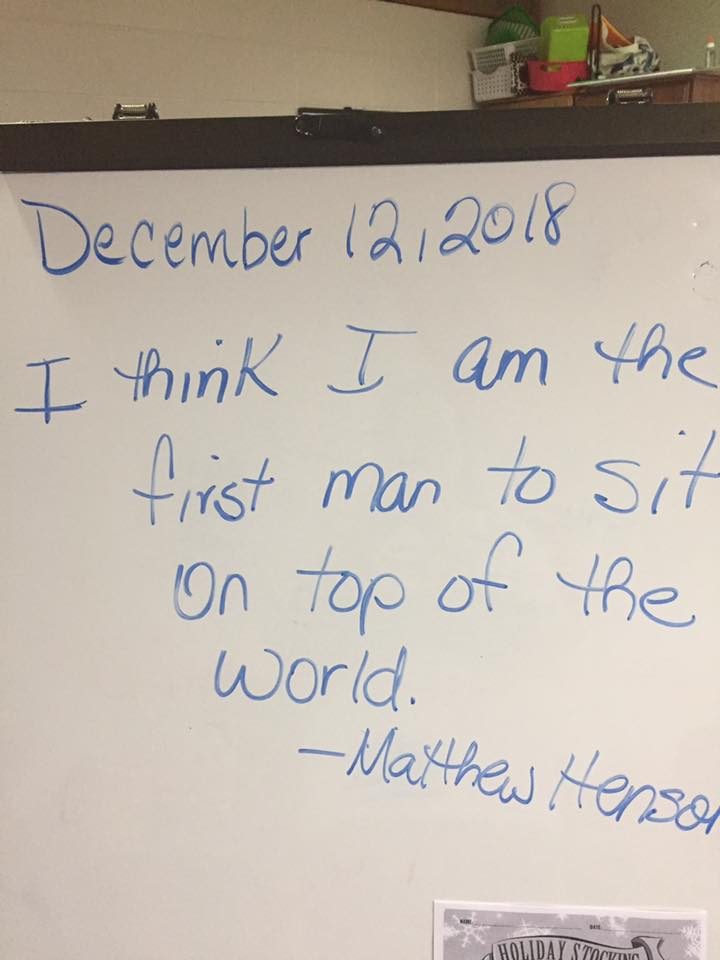 December 12, 2018
I think I am the
first man to sit
on top of the
world.
-Matthew Henson
NAME
DATE
HOLIDAY STOCKING